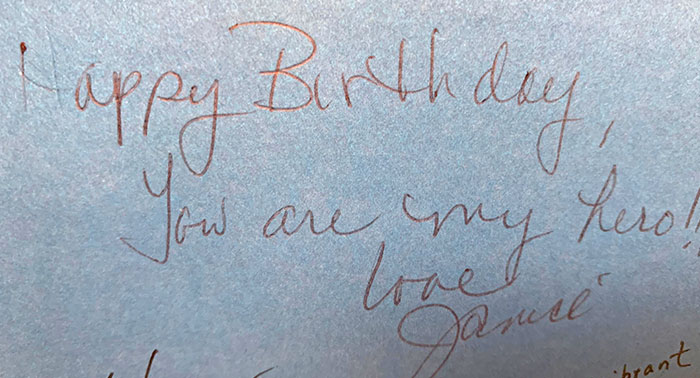 Happy Birthday,
You are my hero!!
love
Janice